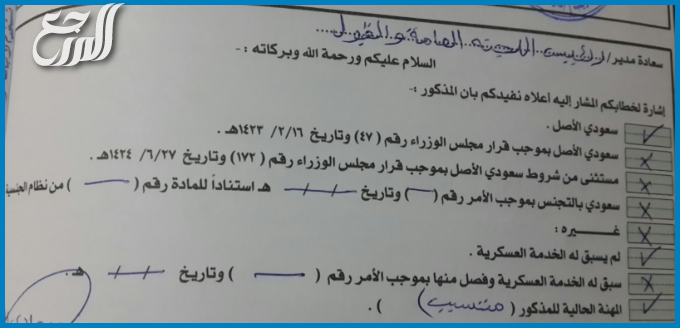 المرجع
سعادة مدير / رئيس اللجنة العامة و القبول
السلام عليكم ورحمة الله وبركاته :-
إشارة لخطابكم المشار إليه أعلاه نفيدكم بان المذكور :-
سعودي الأصل .
سعودي الأصل بموجب قرار مجلس الوزراء رقم (٤٧) وتاريخ ١٤٢٣/٢/١٦هـ .
مستثنى من شروط سعودي الأصل بموجب قرار مجلس الوزراء رقم (١٧٢) وتاريخ ١٤٢٤/٦/٢٧هـ .
سعودي بالتجنس بموجب الأمر رقم ( ) وتاريخ / / هـ استناداً للمادة رقم ( ) من نظام الجنسية
غـــيره :
لم يسبق له الخدمة العسكرية .
سبق له الخدمة العسكرية وفصل منها بموجب الأمر رقم ( ) وتاريخ / / هـ .
المهنة الحالية للمذكور ( منتسب ) .